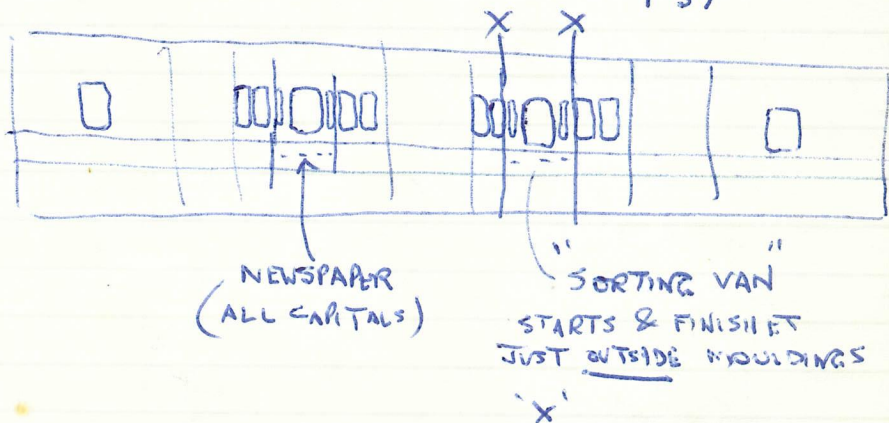 X X
NEWSPAPER
(ALL CAPITALS)
"SORTING VAN"
STARTS & FINISHET
JUST OUTSIDE MOULDINGS
'X'